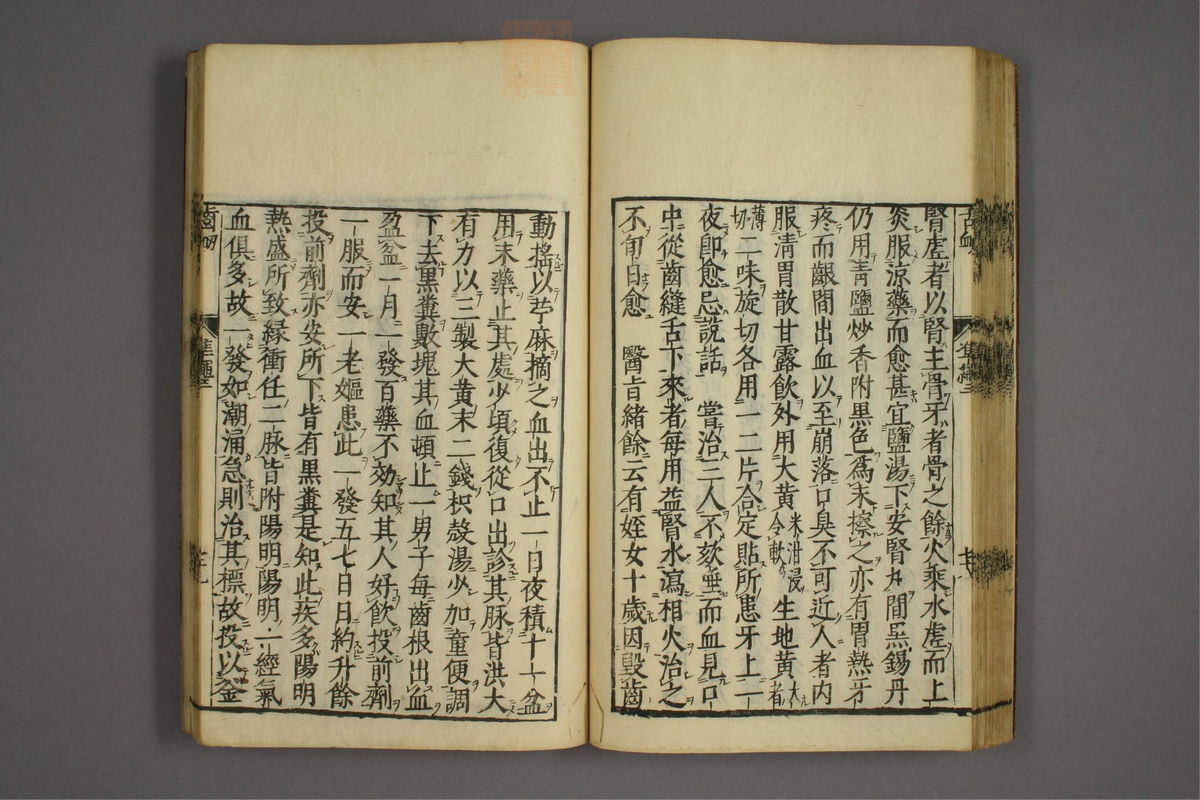 腎虛者以腎主骨牙者骨之餘火乘水虛而上
炎服涼藥而愈甚宜鹽湯下安腎丸間黑錫丹
仍用青鹽炒香附黑色為末擦之亦有胃熱牙
疼而齦間出血以至崩落口臭不可近人者內
服清胃散甘露飲外用大黃米泔浸令軟生地黃大者
薄切二味旋切各用一二片合定貼所患牙上一
夜即愈忌說話　嘗治三人不欬唾而血見口
中從齒縫舌下來者每用益腎水瀉相火治之
不旬日愈　醫旨緒餘云有姪女十歲因毀齒
動搖以苧麻摘之血出不止一日夜積十一盆
用末藥止其處少頃復從口出診其脉皆洪大
有力以三製大黃末二錢枳殼湯少加童便調
下去黑糞數塊其血頓止一男子每齒根出血
盈盆一月一發百藥不効知其人好飲投前劑
一服而安一老嫗患此一發五七日日約升餘
投前劑亦安所下皆有黑糞是知此疾多陽明
熱盛所致緣衝任二脉皆附陽明陽明一經氣
血俱多故一發如潮涌急則治其標故投以釜
齒衄